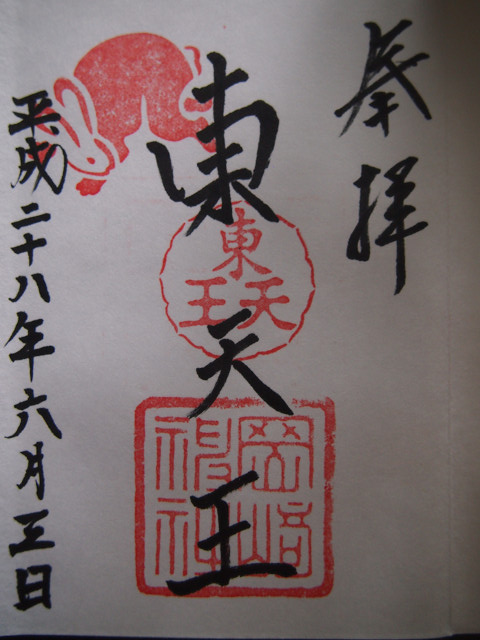 奉拝
東天王
東
天王
岡崎
神社
平成二十八年六月三日